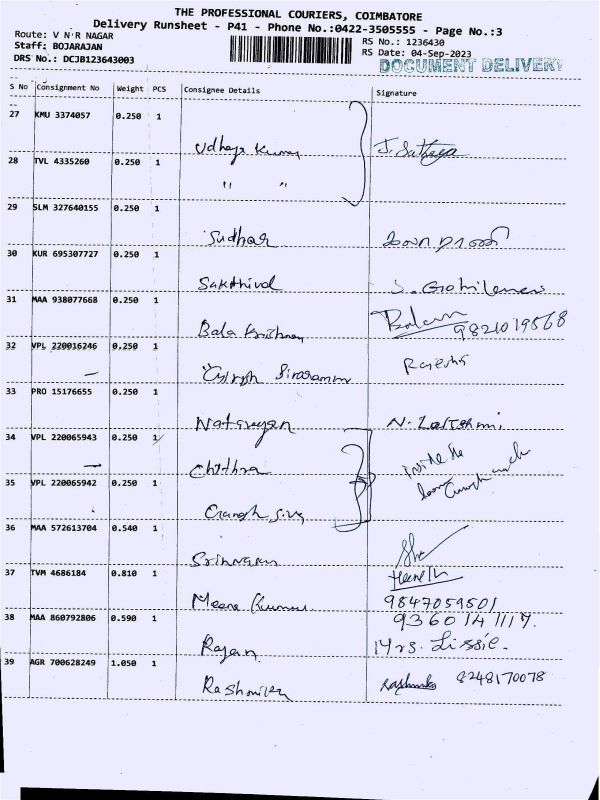 THE PROFESSIONAL COURIERS, COIMBATORE
Delivery Runsheet - P41 - Phone No.:0422-3505555 - Page No.:3
Route: V N R NAGAR
RS No.: 1236430
Staff: BOJARAJAN
RS Date: 04-Sep-2023
DRS No.: DCJB123643003
DOCUMENT DELIVERY
S No Consignment No Weight PCS Consignee Details Signature
27 KMU 3374057 0.250 1
Udhaya Kumar J. Sathya
28 TVL 4335260 0.250 1
" "
29 SLM 327640155 0.250 1
Sudhar
30 KUR 695307727 0.250 1
Sakthivel
31 MAA 938077668 0.250 1
Bala Krishnan 9821019568
32 VPL 220016246 0.250 1
Rajesh
33 PRO 15176655 0.250 1
Natarayan N. Lakshmi
34 VPL 220065943 0.250 1
Chithra inside the
35 VPL 220065942 0.250 1
36 MAA 572613704 0.540 1
37 TVM 4686184 0.810 1
Meena Kumari 9847059501
38 MAA 860792806 0.590 1
9360141117.
Rajan Mrs. Lissie.
39 AGR 700628249 1.050 1
8248170078